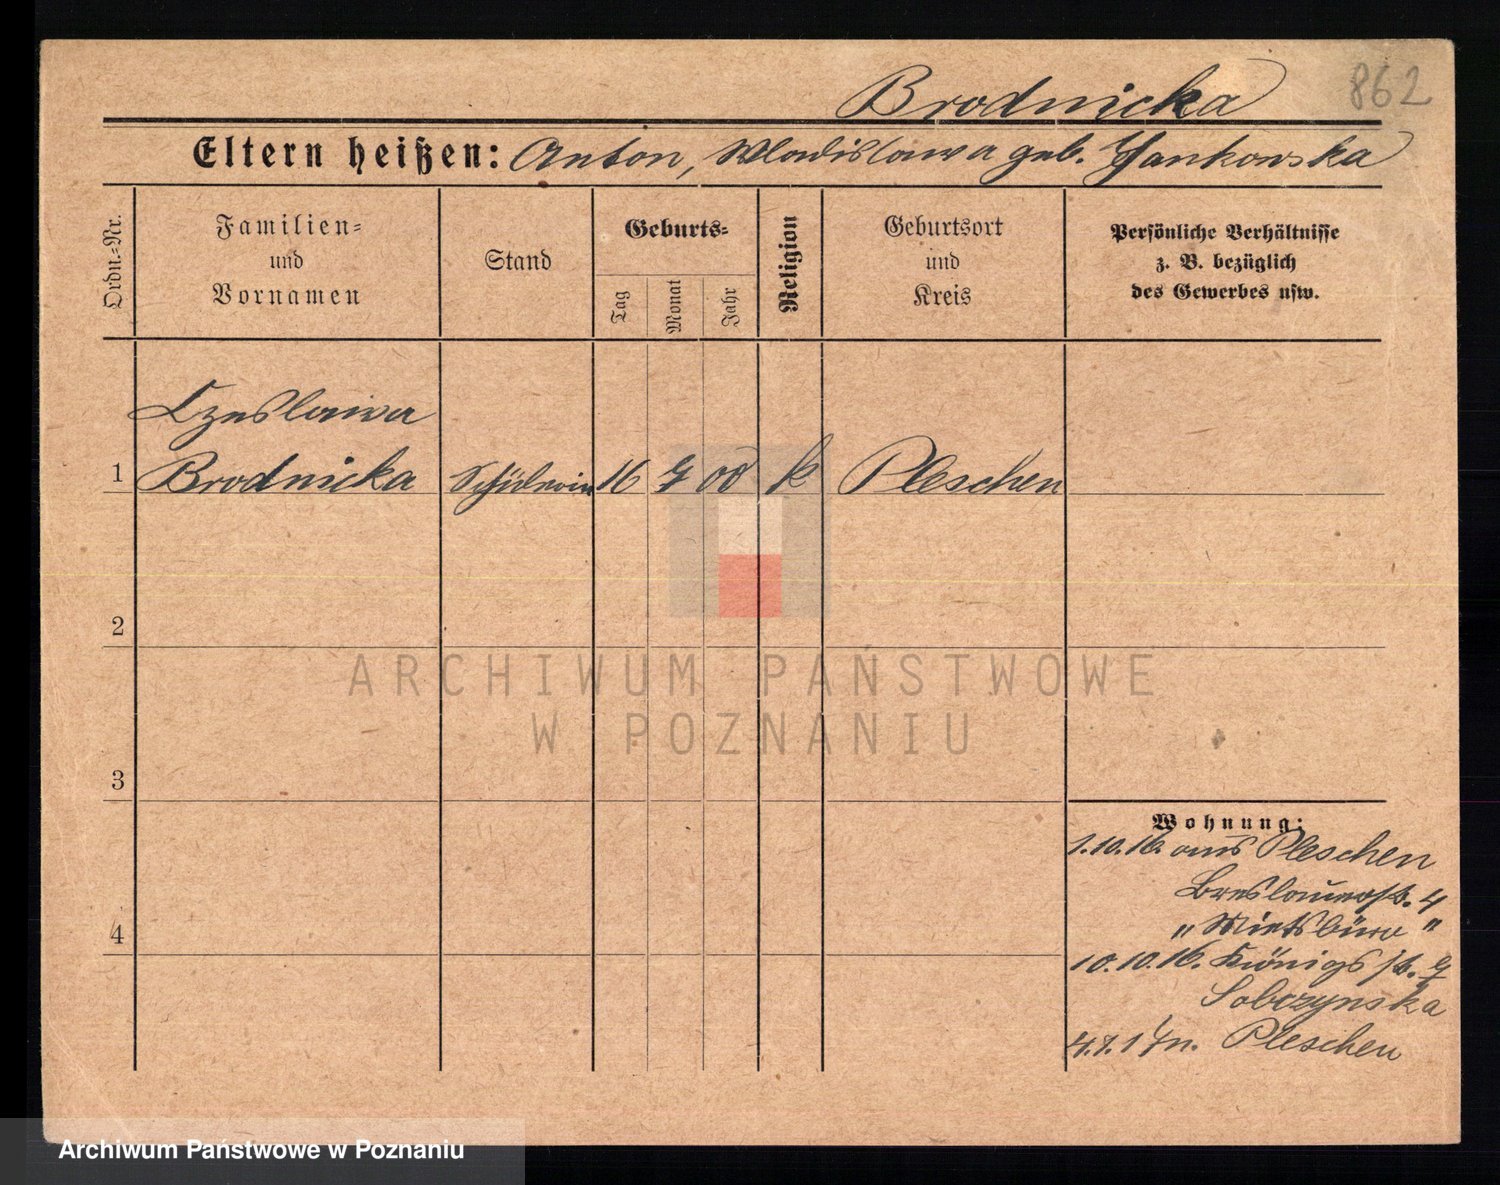 Brodnicka 862
Eltern heißen: Anton, Wladislawa geb. Jankowska
Ordn.-Nr.
Familien-
und
Vornamen
Stand
Geburts-
Tag
Monat
Jahr
Religion
Geburtsort
und
Kreis
Persönliche Verhältnisse
z. B. bezüglich
des Gewerbes usw.
Czeslawa
1 Brodnicka Schülerin 16 7 00 k Pleschen
2
3
4
Wohnung:
1.10.16. aus Pleschen
Breslauerstr. 4
" Mietsbüro "
10.10.16. Königsstr. 9
Sobczynska
4.7.17 n. Pleschen
ARCHIWUM PAŃSTWOWE
W POZNANIU
Archiwum Państwowe w Poznaniu